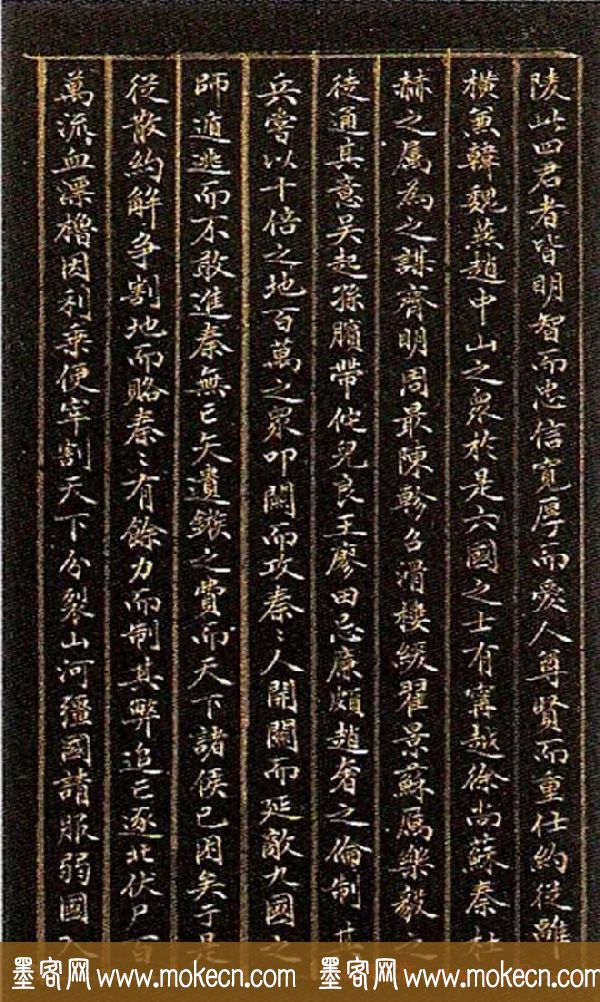 陵此四君者皆明智而忠信寬厚而愛人尊賢而重仕約從離
橫兼韓魏燕趙中山之眾於是六國之士有甯越徐尚蘇秦杜
赫之属為之謀齊明周最陳軫召滑樓緩翟景蘇厲樂毅之
徒通其意吳起孫臏帶佗兒良王廖田忌廉頗趙奢之倫制其
兵嘗以十倍之地百萬之眾叩關而攻秦〻人開關而延敵九國之
師遁逃而不敢進秦無亡矢遺鏃之費而天下諸侯已困矣于是
從散約解争割地而賂秦〻有餘力而制其弊追亡逐北伏尸百
萬流血漂櫓因利乗便宰割天下分裂山河彊國請服弱國入
墨客网 www.mokecn.com 墨客网 www.mokecn.com